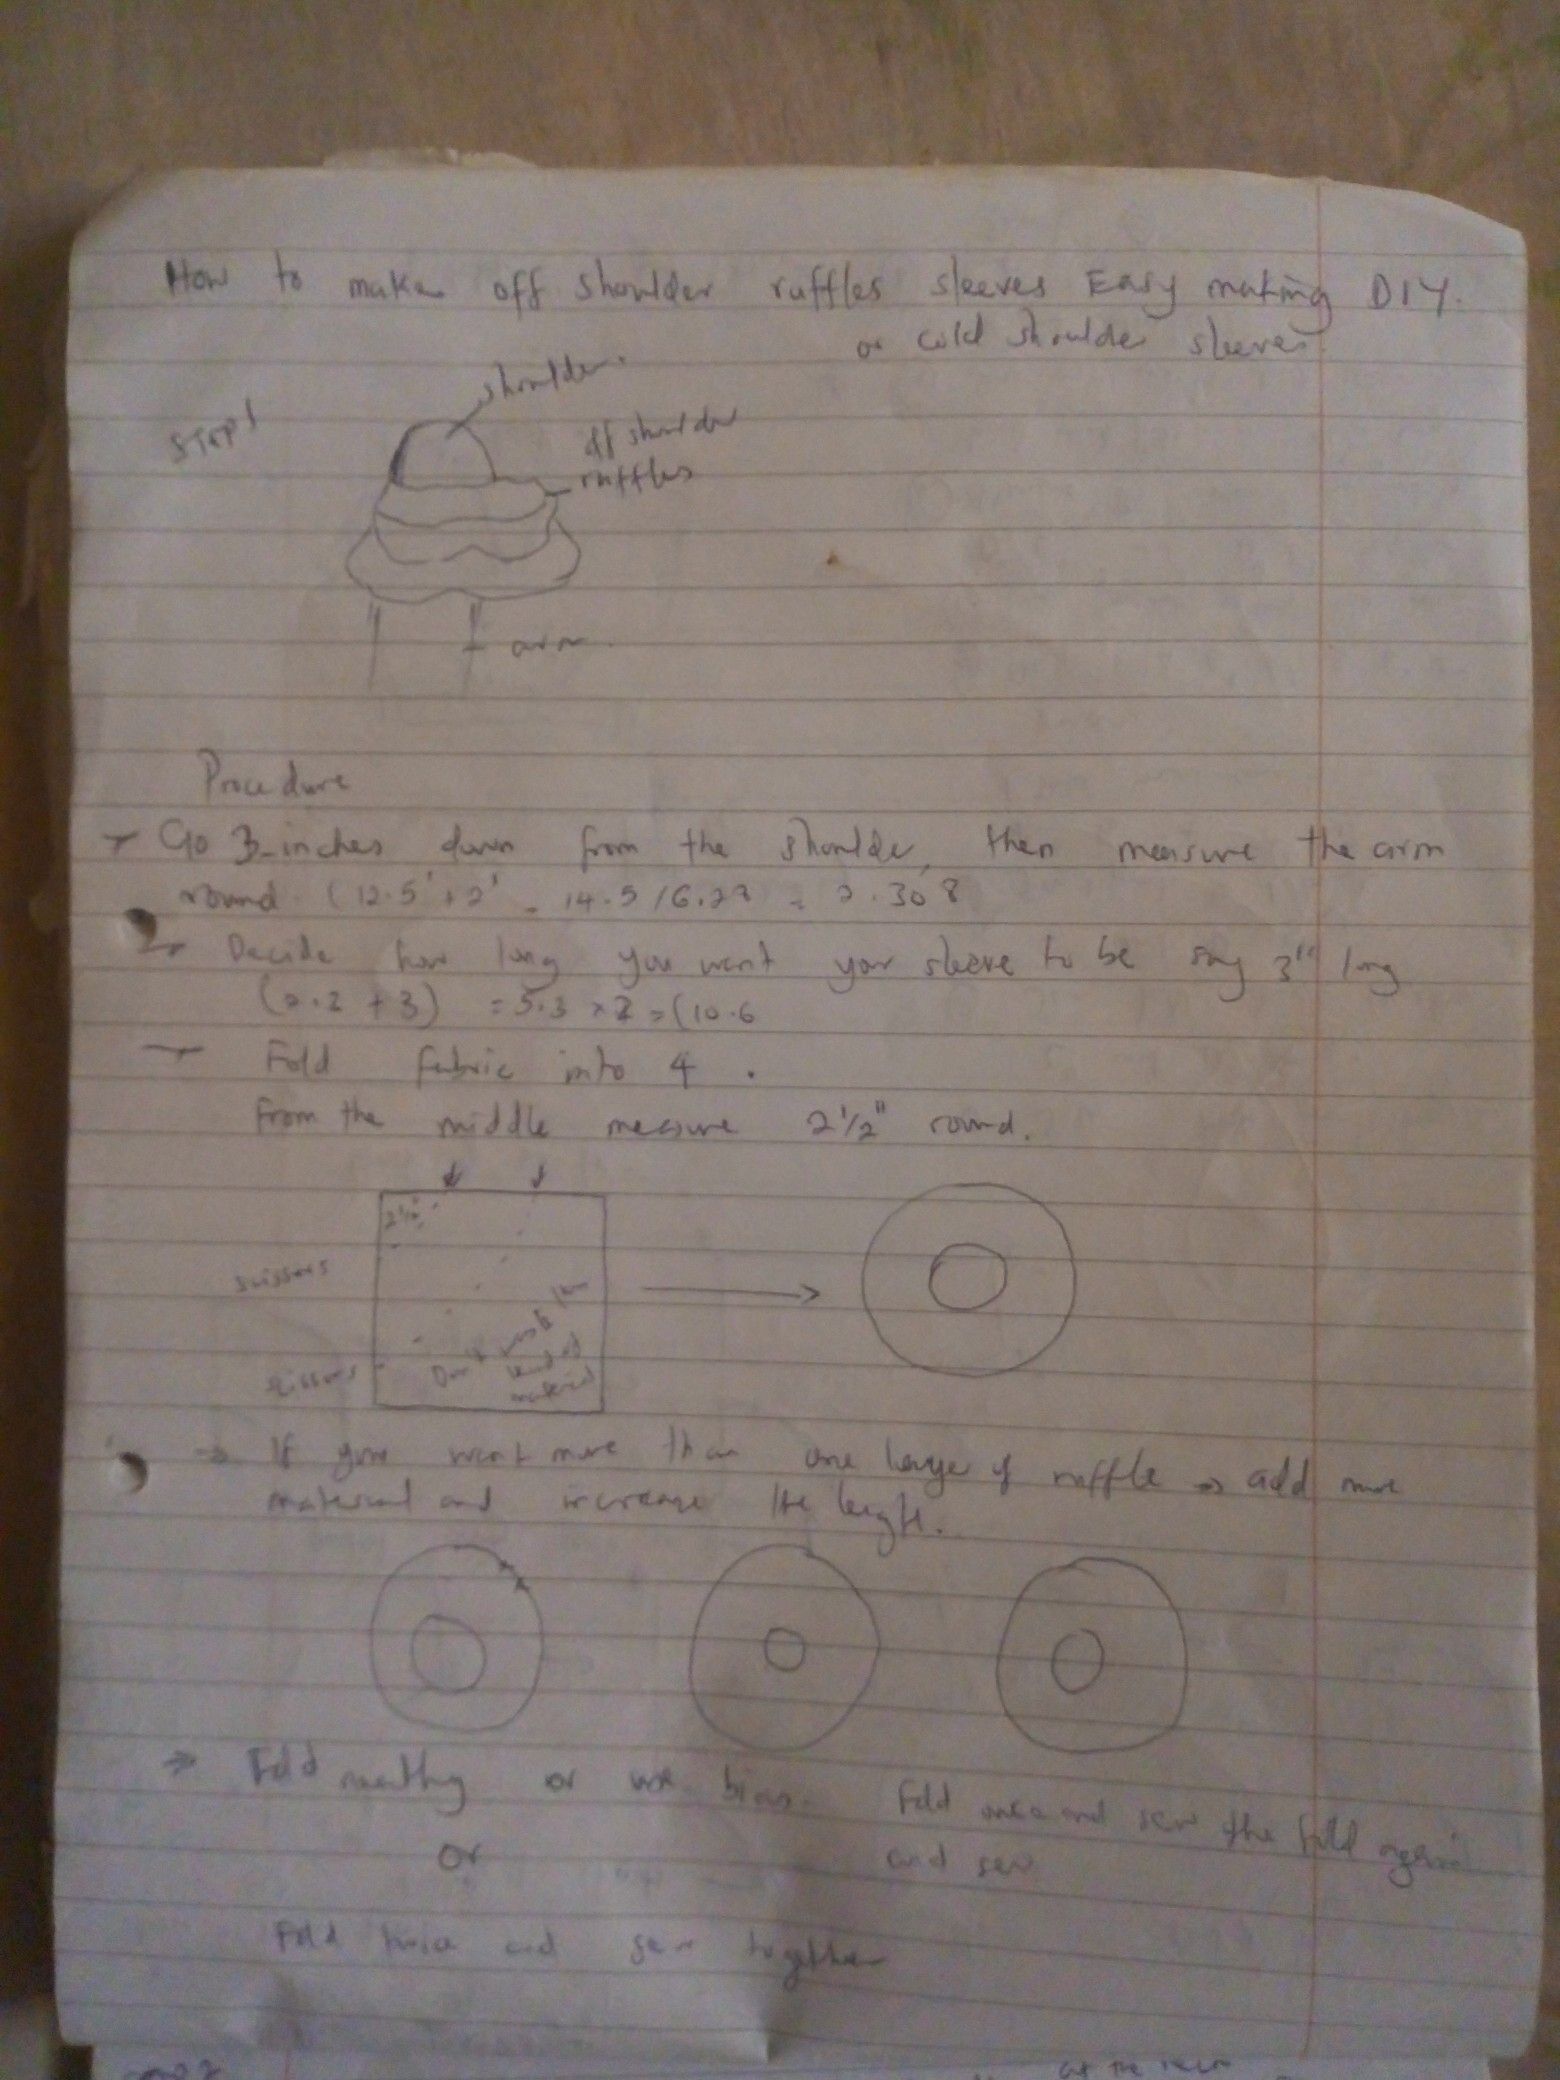 How to make off shoulder ruffles sleeves Easy making DIY.
or cold shoulder sleeves.
STEP 1
shoulder.
off shoulder
ruffles
arm.
Procedure
Go 3-inches down from the shoulder, then measure the arm
round. (12.5' + 2' = 14.5 / 6.28 = 2.308
Decide how long you want your sleeve to be say 3" long
(2.2 + 3) = 5.3 x 2 = (10.6
Fold fabric into 4.
From the middle measure 2 1/2" round.
2 1/2"
scissors
scissors
material
If you want more than one layer of ruffle → add more
material and increase the length.
Fold neatly or use bias. Fold once and sew the fold again
and sew
Or
Fold twice and sew together
at the